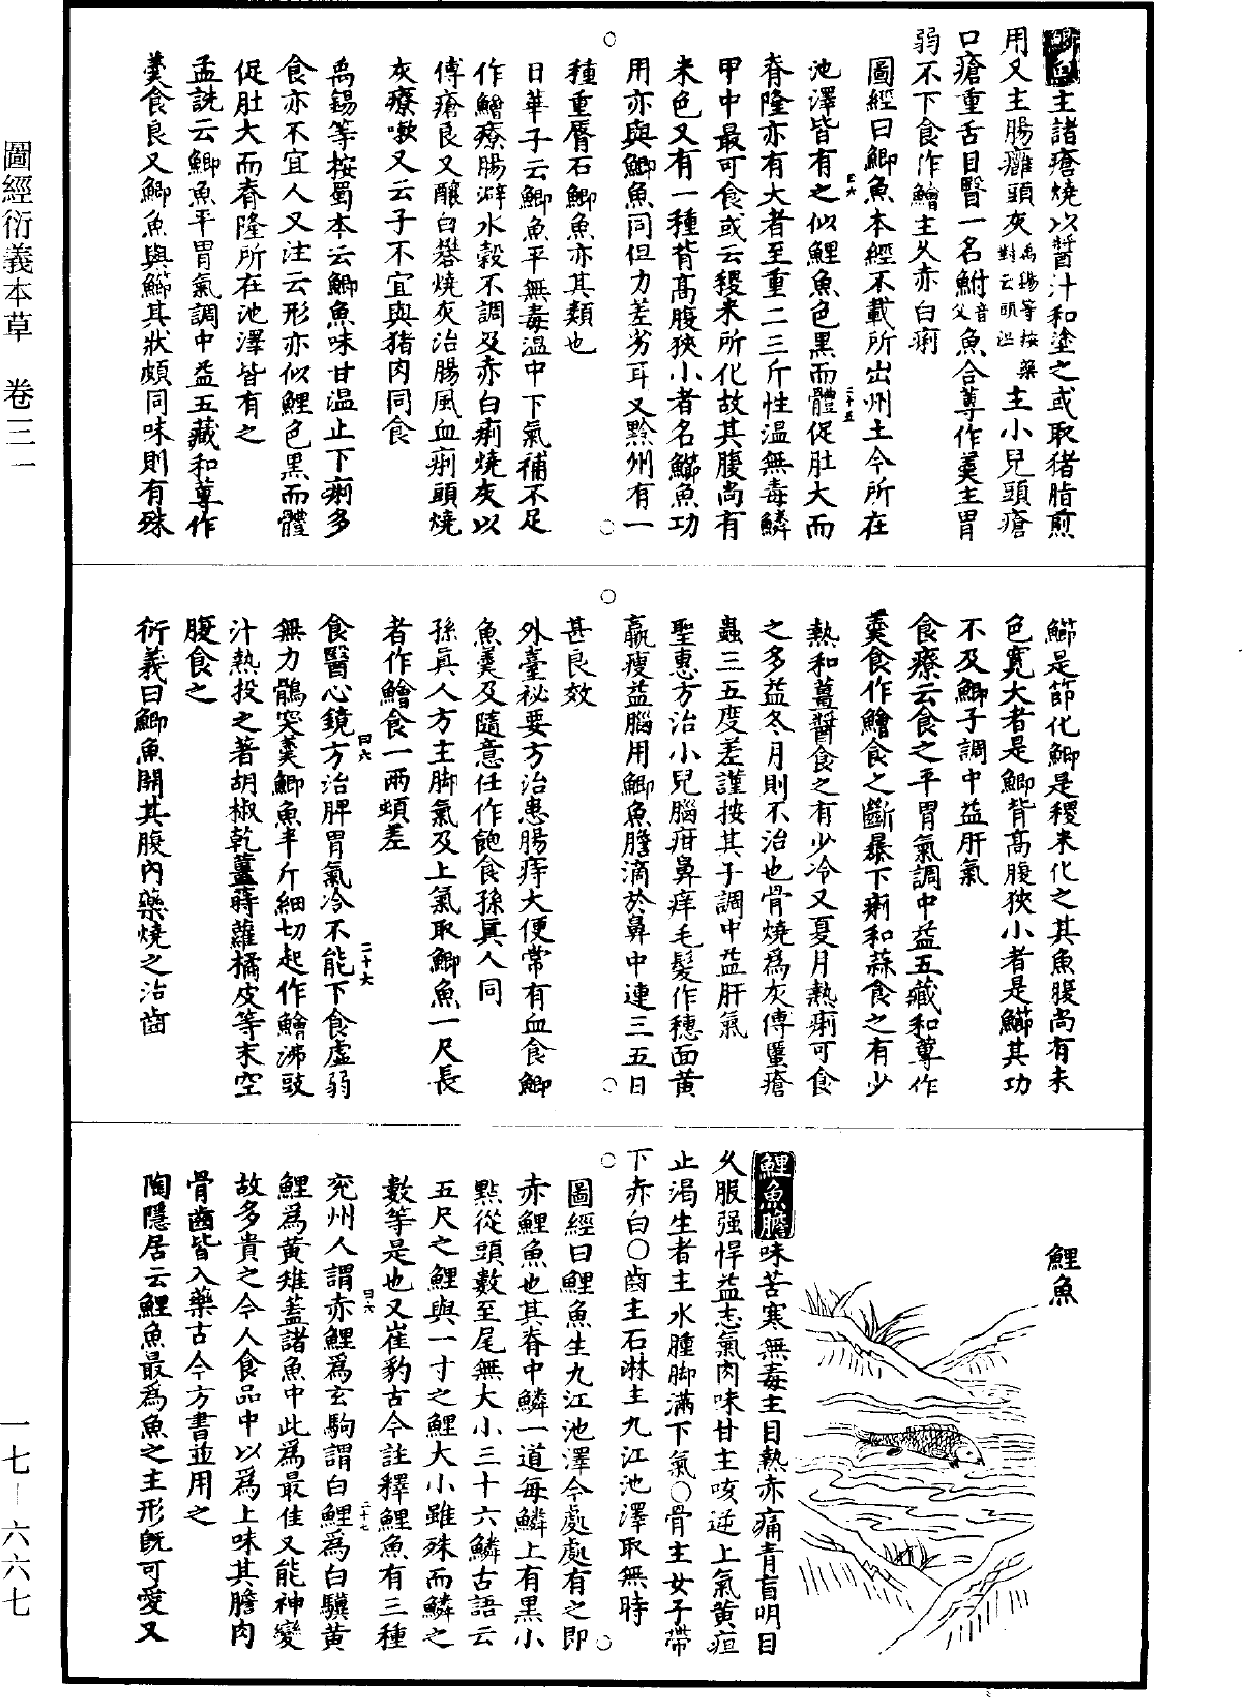 圖經衍義本草　卷三一
鯽魚主諸瘡燒以醬汁和塗之或取猪脂煎
用又主腸癰頭灰禹錫等按藥對云頭溫主小兒頭瘡
口瘡重舌目瞖一名鮒音父魚合蓴作羹主胃
弱不下食作鱠主久赤白痢
圖經曰鯽魚本經不載所出州土今所在
池澤皆有之似鯉魚色黑而體促肚大而
脊隆亦有大者至重二三斤性温無毒鱗
甲中最可食或云稷米所化故其腹尚有
米色又有一種背高腹狹小者名鯽魚功
用亦與鯽魚同但力差劣耳又黔州有一
種重脣石鯽魚亦其類也
日華子云鯽魚平無毒温中下氣補不足
作鱠療腸澼水穀不調及赤白痢燒灰以
傅瘡良又釀白礬燒灰治腸風血痢頭燒
灰療嗽又云子不宜與猪肉同食
禹錫等按蜀本云鯽魚味甘温止下痢多
食亦不宜人又注云形亦似鯉色黑而體
促肚大而脊隆所在池澤皆有之
孟詵云鯽魚平胃氣調中益五藏和蓴作
羹食良又鯽魚與䲙其狀頗同味則有殊
䲙是節化鯽是稷米化之其魚腹尚有米
色寛大者是鯽背高腹狹小者是䲙其功
不及鯽子調中益肝氣
食療云食之平胃氣調中益五藏和蓴作
羹食作鱠食之斷暴下痢和蒜食之有少
熱和薑醬食之有少冷又夏月熱痢可食
之多益冬月則不治也骨燒爲灰傅䘌瘡
蟲三五度差謹按其子調中益肝氣
聖惠方治小兒腦疳鼻痒毛髮作穗面黄
羸瘦益腦用鯽魚膽滴於鼻中連三五日
甚良效
外臺祕要方治患腸痔大便常有血食鯽
魚羹及隨意任作飽食孫真人同
孫真人方主脚氣及上氣取鯽魚一尺長
者作鱠食一兩頓差
食醫心鏡方治脾胃氣冷不能下食虛弱
無力鶻突羹鯽魚半斤細切起作鱠沸豉
汁熱投之著胡椒乾薑蒔蘿橘皮等末空
腹食之
衍義曰鯽魚開其腹内藥燒之治齒
鯉魚
鯉魚膽味苦寒無毒主目熱赤痛青盲明目
久服强悍益志氣肉味甘主咳逆上氣黄疸
止渴生者主水腫脚滿下氣○骨主女子帶
下赤白○齒主石淋生九江池澤取無時
圖經曰鯉魚生九江池澤今處處有之即
赤鯉魚也其脊中鱗一道毎鱗上有黑小
點從頭數至尾無大小三十六鱗古語云
五尺之鯉與一寸之鯉大小雖殊而鱗之
數等是也又崔豹古今註釋鯉魚有三種
兖州人謂赤鯉爲玄駒謂白鯉爲白驥黄
鯉爲黄雉蓋諸魚中此爲最佳又能神變
故多貴之今人食品中以爲上味其膽肉
骨齒皆入藥古今方書並用之
陶隱居云鯉魚最爲魚之主形旣可愛又
一七—六六七